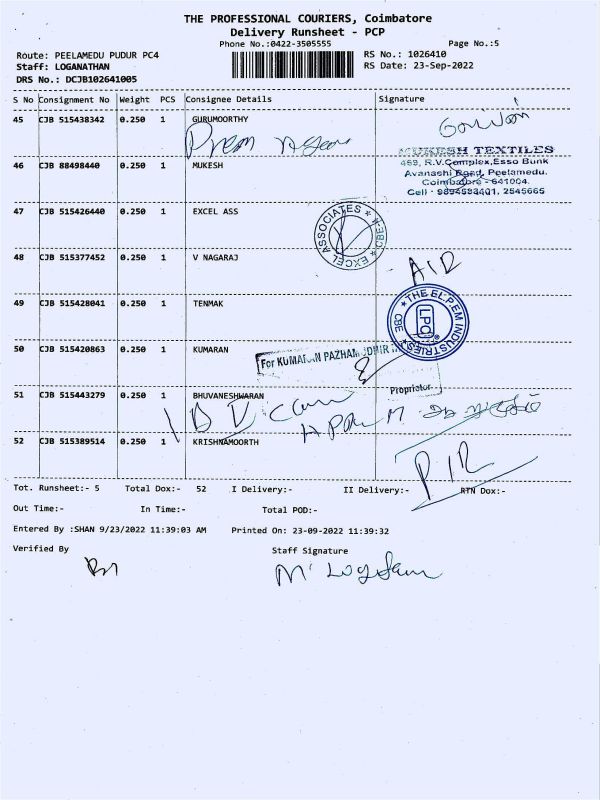 THE PROFESSIONAL COURIERS, Coimbatore
Delivery Runsheet - PCP
Phone No.:0422-3505555 Page No.:5
Route: PEELAMEDU PUDUR PC4 RS No.: 1026410
Staff: LOGANATHAN RS Date: 23-Sep-2022
DRS No.: DCJB102641005
S No Consignment No Weight PCS Consignee Details Signature
45 CJB 515438342 0.250 1 GURUMOORTHY
Prem
MUKESH TEXTILES
46 CJB 88498440 0.250 1 MUKESH 453, R.V.Complex,Esso Bunk
Avanashi Road, Peelamedu.
Coimbatore - 641004.
Cell : 2545665
47 CJB 515426440 0.250 1 EXCEL ASS
EXCEL ASSOCIATES ★ CBE ★
48 CJB 515377452 0.250 1 V NAGARAJ
49 CJB 515428041 0.250 1 TENMAK
★ THE EL.P.EM INDUSTRIES ★ CBE
LPCI
50 CJB 515420863 0.250 1 KUMARAN
For KUMARAN PAZHAMUDHIR
Proprietor
51 CJB 515443279 0.250 1 BHUVANESHWARAN
52 CJB 515389514 0.250 1 KRISHNAMOORTH
Tot. Runsheet:- 5 Total Dox:- 52 I Delivery:- II Delivery:- RTN Dox:-
Out Time:- In Time:- Total POD:-
Entered By :SHAN 9/23/2022 11:39:03 AM Printed On: 23-09-2022 11:39:32
Verified By Staff Signature